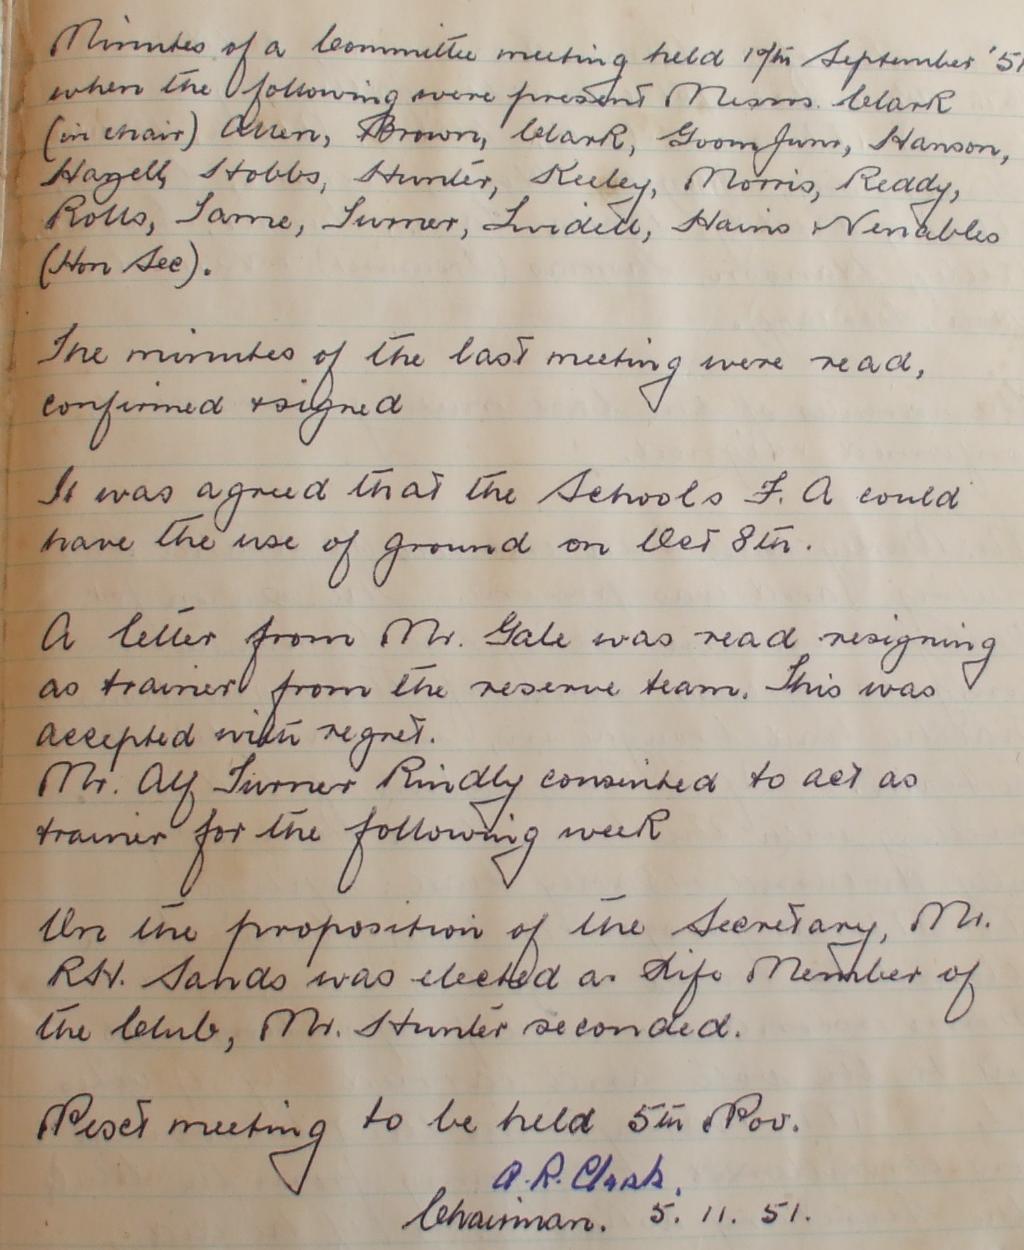 Minutes of a Committee meeting held 19th September '51
when the following were present Messrs. Clark
(in chair) Allen, Brown, Clark, Goom Junr, Hanson,
Hazell, Hobbs, Hunter, Keeley, Morris, Reddy,
Rolls, Tame, Turner, Twidell, Hains & Venables
(Hon Sec).
The minutes of the last meeting were read,
confirmed & signed
It was agreed that the Schools F. A could
have the use of ground on Oct 8th.
A letter from Mr. Gale was read resigning
as trainer from the reserve team. This was
accepted with regret.
Mr. Alf Turner kindly consented to act as
trainer for the following week
On the proposition of the Secretary, Mr.
R.H. Sands was elected a Life Member of
the Club, Mr. Hunter seconded.
Next meeting to be held 5th Nov.
A. R. Clark.
Chairman. 5. 11. 51.